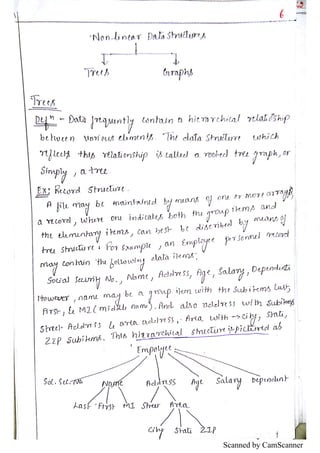 6
Non-linear Data Structures
Trees Graphs
Trees
Defn - Data frequently contain a hierarchical relationship
between various elements. The data structure which
reflects this relationship is called a rooted tree graph, or
Simply, a tree
Ex: Record Structure.
A file may be maintained by means of one or more arrays
a record, where one indicates both the group items and
the elementary items, can best be described by means of
tree structure. For Example, an Employee personnel record
may contain the following data items:
Social Security No., Name, Address, Age, Salary, Dependents
However, name may be a group item with the Subitems Last,
First, & MI (middle name). And also address with Subitems
Street Address & area address, Area with → city, state,
ZIP Subitems. This hierarchical structure is pictured as
Employee
Soc. Sec. No Name Address Age Salary Dependent
Last First MI Street Area
City State ZIP
1
Scanned by CamScanner